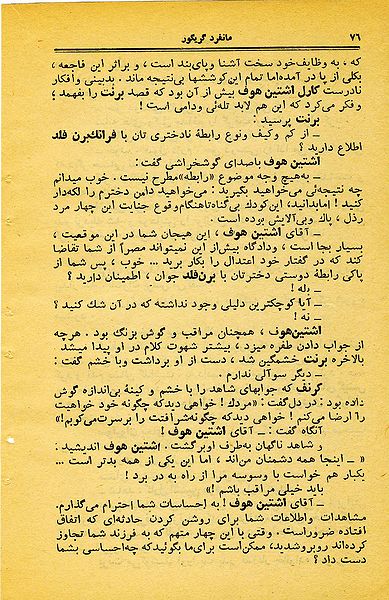 ۷۶ مانفرد گریگور
که ، به وظایف‌خود سخت آشنا و پای‌بند است ، و براثر این فاجعه ،
بکلی از پا در آمده‌اما تمام این کوششها بی‌نتیجه ماند . بدبینی وافکار
نادرست کارل اشتین هوف بیش از آن بود که قصد برنت را بفهمد ؛
و فکر می‌کرد که این هم لابد تله‌ئی ودامی است !
برنت پرسید :
ـ از کم وکیف ونوع رابطهٔ نادختری تان با فرانك‌برن فلد
اطلاع دارید ؟
اشتین هوف باصدای گوشخراشی گفت :
ـ به‌هیچ وجه موضوع «رابطه»مطرح نیست . خوب میدانم
چه نتیجه‌ئی می‌خواهید بگیرید : می‌خواهید دامن دخترم را لکه‌دار
کنید ! امابدانید، این کودك بی‌گناه‌تاهنگام‌وقوع جنایت این چهار مرد
رذل ، پاك وبی‌آلایش بوده است .
ـ آقای اشتین هوف ، این هیجان شما در این موقعیت ،
بسیار بجا است ، ودادگاه بیش‌از این نمیتواند مصراً از شما تقاضا
کند که در گفتار خود اعتدال را بکار برید ... خوب ، پس شما از
پاکی رابطهٔ دوستی دخترتان با برن‌فلد جوان ، اطمینان دارید ؟
ـ بله !
ـ آیا کوچکترین دلیلی وجود نداشته که در آن شك کنید ؟
ـ نه !
اشتین‌هوف ، همچنان مراقب و گوش بزنگ بود . هرچه
از جواب دادن طفره میزد ، بیشتر شهوت کلام در او پیدا میشد .
بالاخره برنت خشمگین شد ، دست از او برداشت وبا خشم گفت :
ـ دیگر سوآلی ندارم .
کرنف که جوابهای شاهد را با خشم و کینهٔ بی‌اندازه گوش
داده بود : در دل‌گفت : «مردك ! خواهی دیدکه چگونه خود خواهیت
را ارضا می‌کنم ! خواهی دیدکه چگونه‌شرافتت را برسرت‌می‌کوبم!»
آنگاه گفت : ـ آقای اشتین هوف !
و شاهد ناگهان به‌طرف اوبرگشت . اشتین هوف اندیشید :
« ـ اینجا همه دشمنان من‌اند ، اما این یکی از همه بدتر است ...
یکبار هم خواست با وسوسه مرا از راه به در برد !
باید خیلی مراقب باشم !»
ـ آقای اشتین هوف ! به احساسات شما احترام می‌گذارم.
مشاهدات واطلاعات شما برای روشن کردن حادثه‌ای که اتفاق
افتاده ضروراست . وقتی با این چهار متهم که به فرزند شما تجاوز
کرده‌اند روبروشدید، ممکن‌است برای‌ما بگوئیدکه چه‌احساسی بشما
دست داد ؟